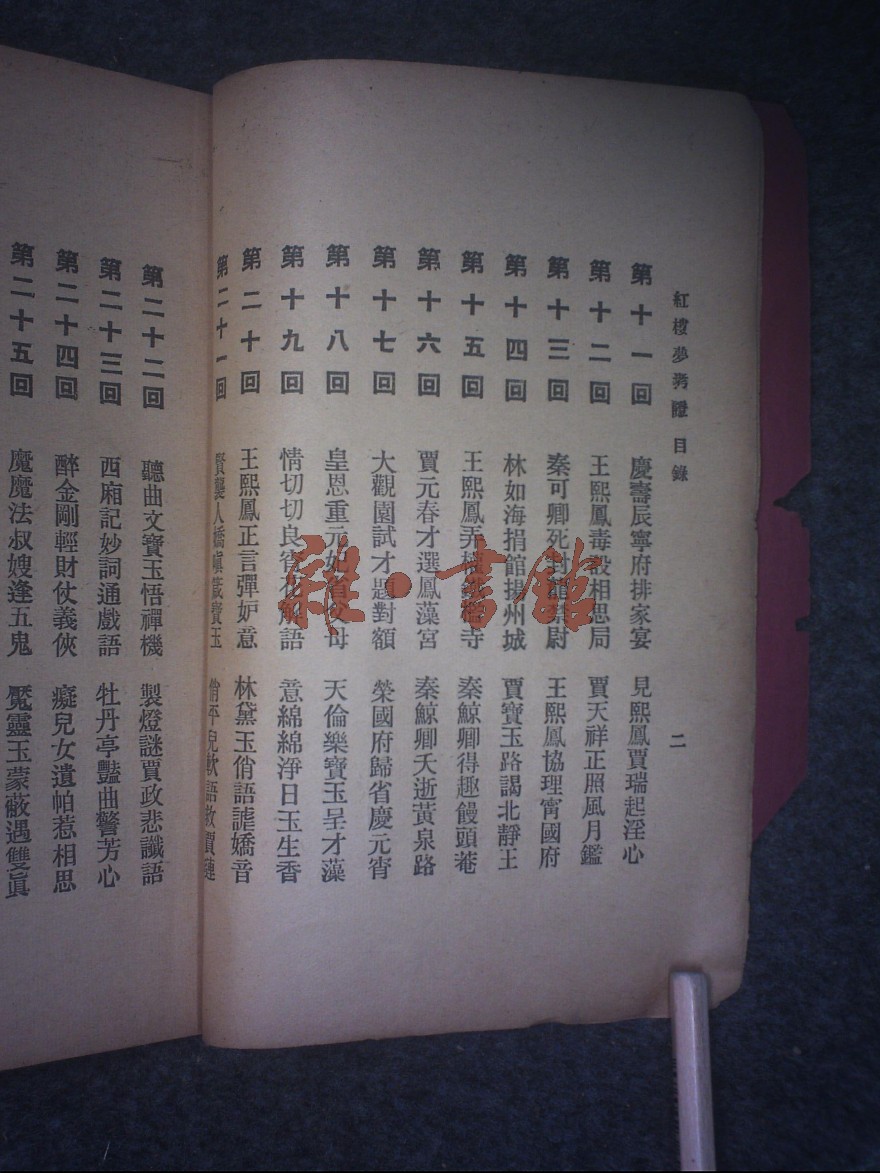 紅樓夢考證 目錄 二
第十一回 慶壽辰寧府排家宴 見熙鳳賈瑞起淫心
第十二回 王熙鳳毒設相思局 賈天祥正照風月鑑
第十三回 秦可卿死封龍禁尉 王熙鳳協理甯國府
第十四回 林如海捐館揚州城 賈寶玉路謁北靜王
第十五回 王熙鳳弄權鐵檻寺 秦鯨卿得趣饅頭菴
第十六回 賈元春才選鳳藻宮 秦鯨卿夭逝黃泉路
第十七回 大觀園試才題對額 榮國府歸省慶元宵
第十八回 皇恩重元妃省父母 天倫樂寶玉呈才藻
第十九回 情切切良宵花解語 意綿綿淨日玉生香
第二十回 王熙鳳正言彈妒意 林黛玉俏語謔嬌音
第二十一回 賢襲人嬌嗔箴寶玉 俏平兒軟語救賈璉
第二十二回 聽曲文寶玉悟禪機 製燈謎賈政悲讖語
第二十三回 西廂記妙詞通戲語 牡丹亭豔曲警芳心
第二十四回 醉金剛輕財仗義俠 癡兒女遺帕惹相思
第二十五回 魔魔法叔嫂逢五鬼 魘靈玉蒙蔽遇雙眞
雜·書館